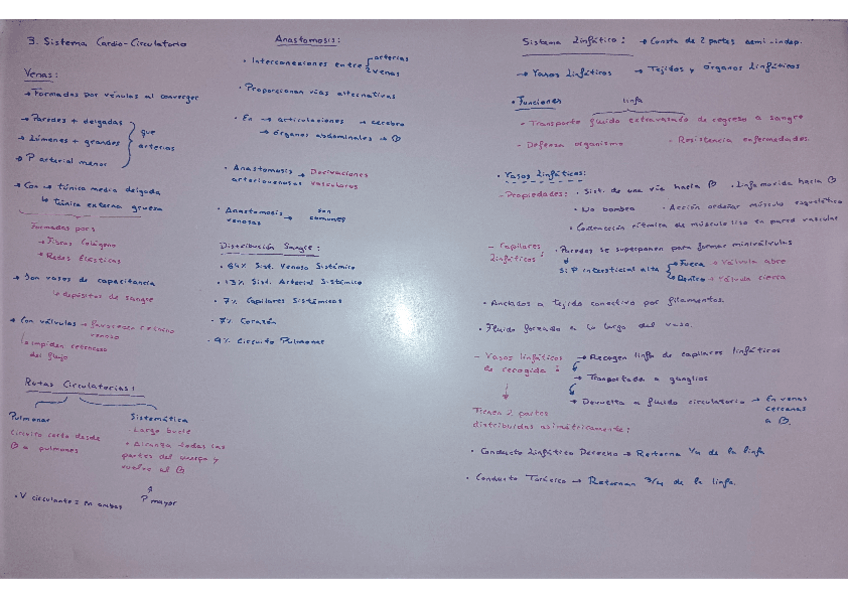 3. Sistema Cardio-Circulatorio
Venas:
→ Formadas por vénulas al converger
→ Paredes + delgadas
→ Lúmenes + grandes
→ P arterial menor
que arterias
→ Con → túnica media delgada
↳ túnica externa gruesa
Formadas por:
→ Fibras Colágeno
→ Redes Elásticas
→ Son vasos de capacitancia
↳ depósitos de sangre
→ Con válvulas → favorecen retorno
venoso
↳ impiden retroceso
del flujo
Rutas Circulatorias:
Pulmonar
Circuito corto desde
a pulmones
• V circulante = en ambas
Sistemática
• Largo bucle
• Alcanza todas las
partes del cuerpo y
vuelve al
P mayor
Anastomosis:
• Interconexiones entre
arterias
venas
• Proporcionan vías alternativas
• En → articulaciones → cerebro
→ órganos abdominales →
• Anastomosis → Derivaciones
arteriovenosas vasculares
• Anastomosis → son
venosas comunes
Distribución Sangre:
• 64% Sist. Venoso Sistémico
• 13% Sist. Arterial Sistémico
• 7% Capilares Sistémicos
• 7% Corazón
• 9% Circuito Pulmonar
Sistema Linfático: → Consta de 2 partes semi-indep.
→ Vasos Linfáticos → Tejidos y órganos linfáticos
• Funciones
linfa
- Transporte fluido extravasado de regreso a sangre
- Defensa organismo - Resistencia enfermedades.
• Vasos Linfáticos:
- Propiedades: • Sist. de una vía hacia • Linfa movida hacia
• No bomba • Acción ordeñar músculo esquelético
• Contracción rítmica de músculo liso en pared vascular
- Capilares
Linfáticos:
• Paredes se superponen para formar miniválvulas
Si P intersticial alta
Fuera → Válvula abre
Dentro → Válvula cierra
• Anclados a tejido conectivo por filamentos.
• Fluido forzado a lo largo del vaso.
- Vasos linfáticos
de recogida:
→ Recogen linfa de capilares linfáticos
→ Transportada a ganglios
→ Devuelta a fluido circulatorio → En venas
cercanas
a
Tienen 2 partes
distribuidas asimétricamente:
• Conducto Linfático Derecho → Retorna 1/4 de la linfa
• Conducto Torácico → Retornan 3/4 de la linfa.